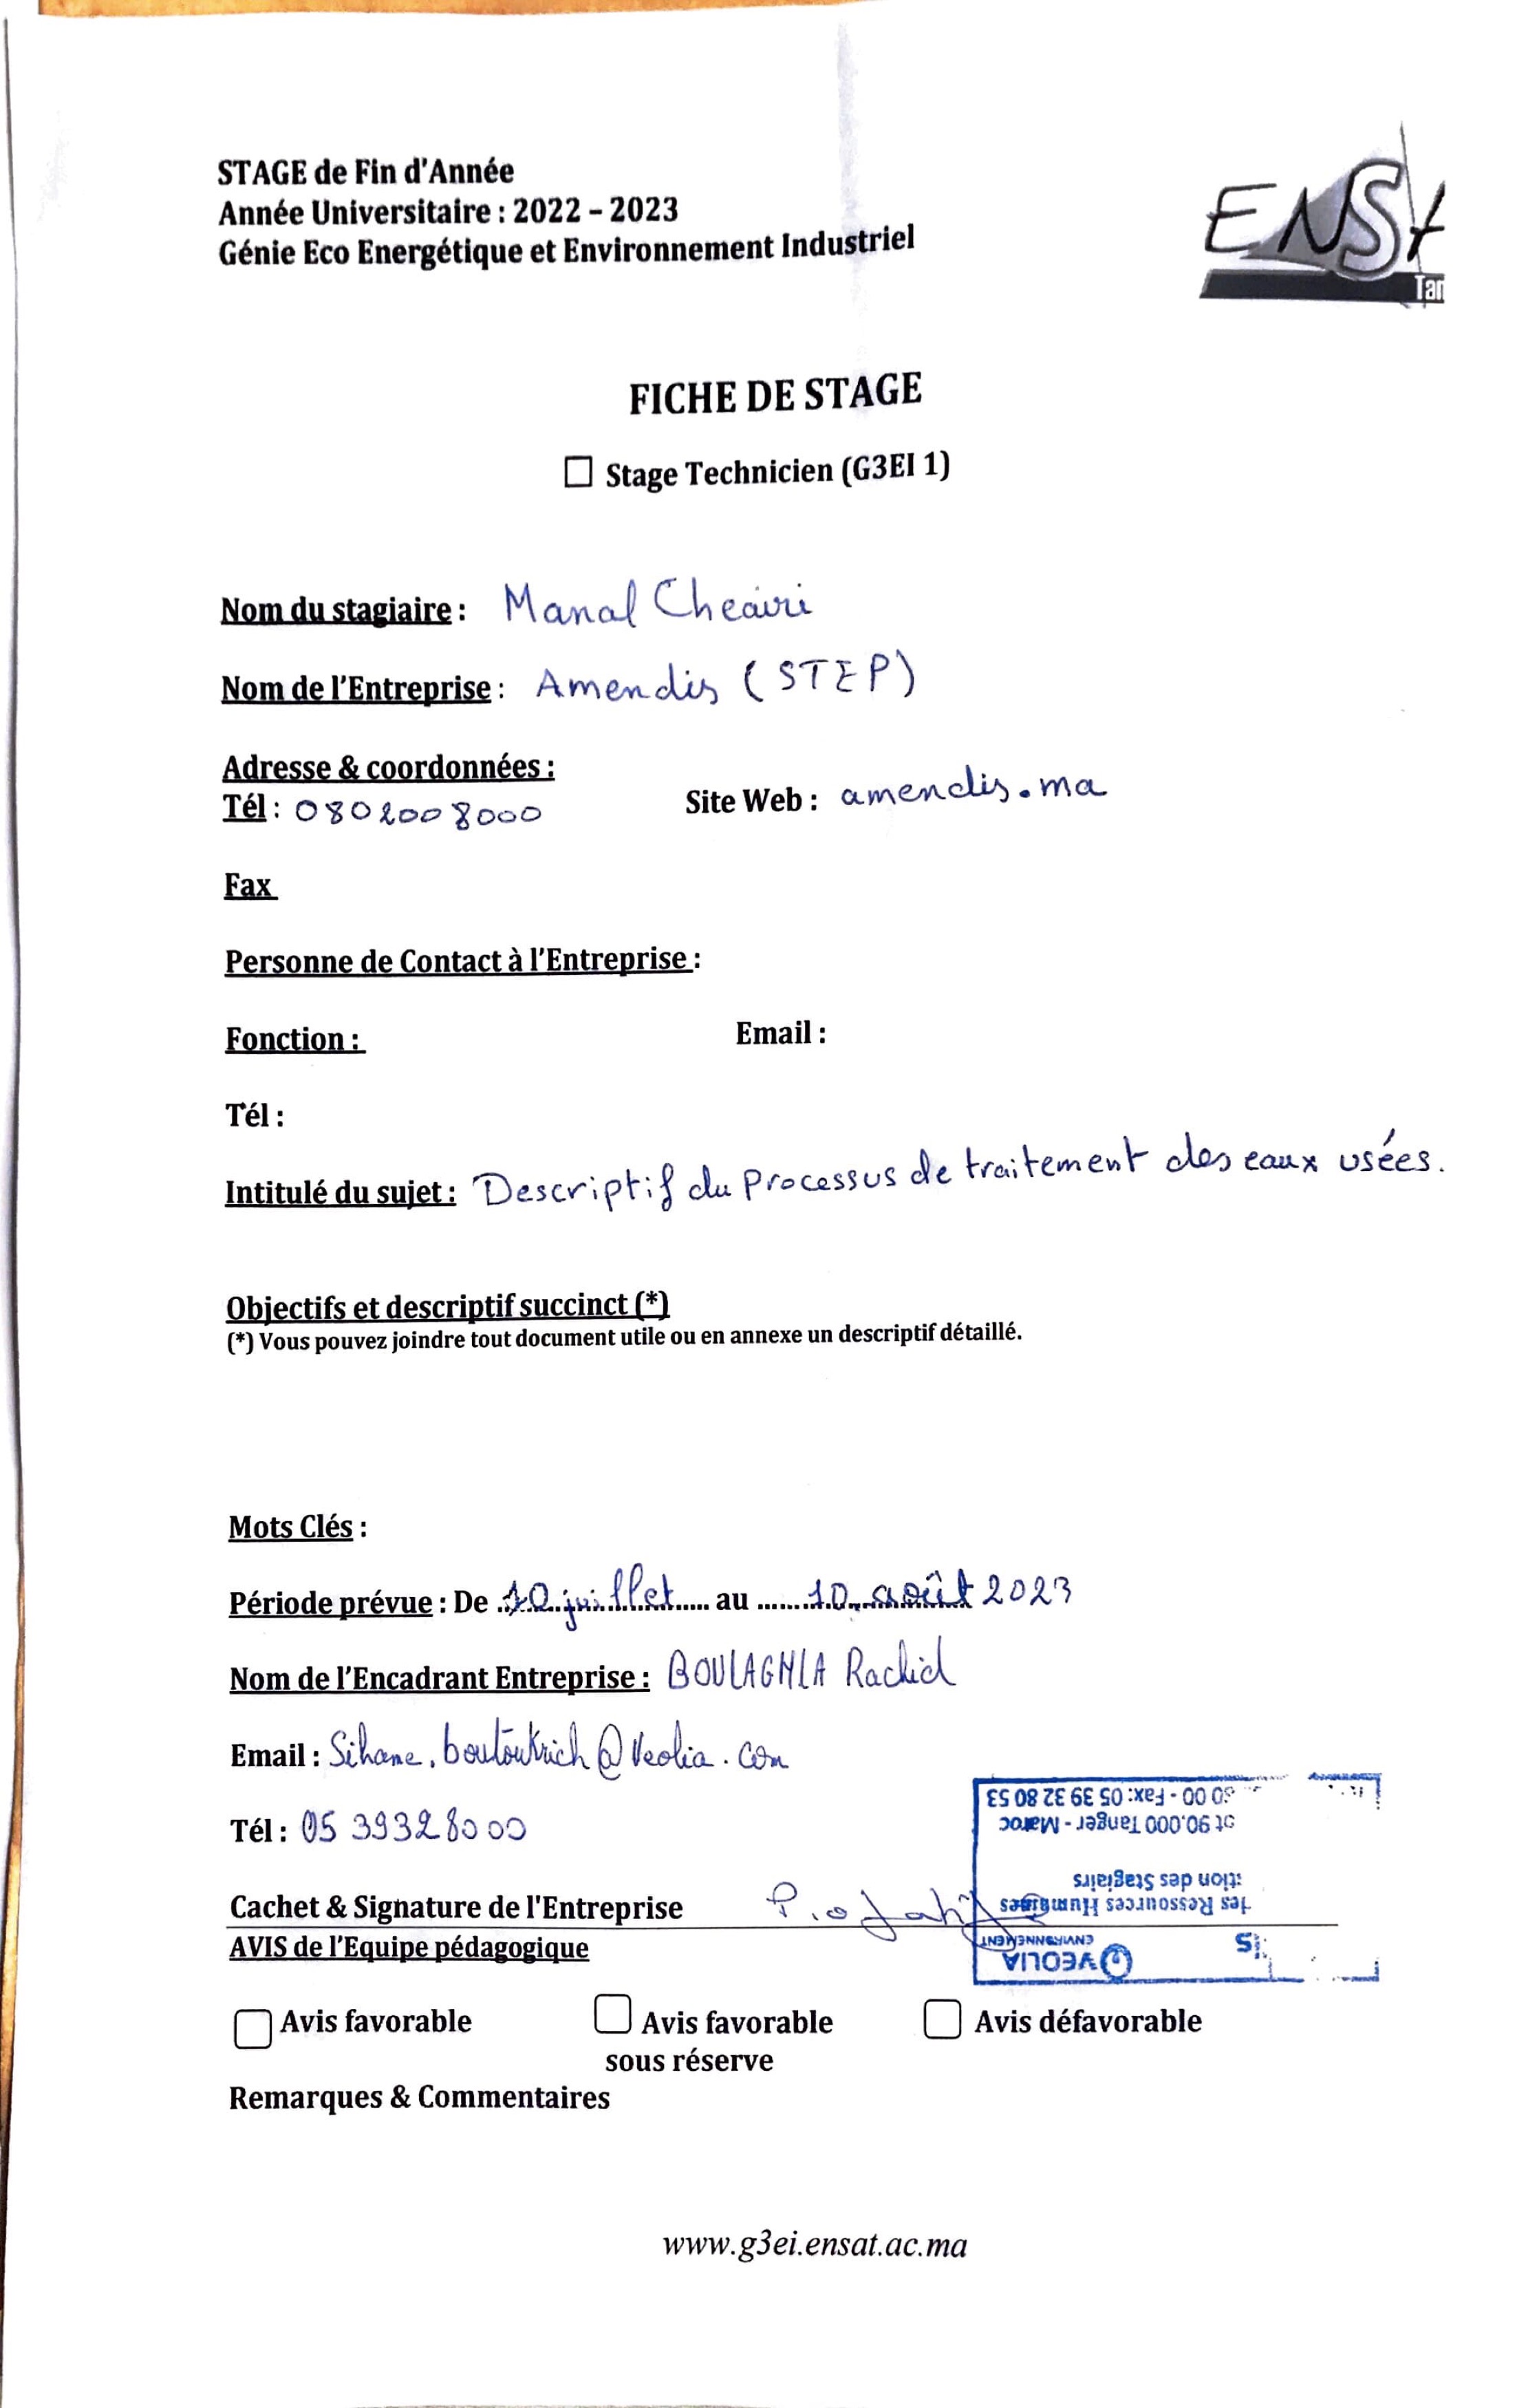 STAGE de Fin d'Année
Année Universitaire : 2022 – 2023
Génie Eco Energétique et Environnement Industriel
ENSA
Tan
FICHE DE STAGE
☐ Stage Technicien (G3EI 1)
Nom du stagiaire : Manal Cheairi
Nom de l'Entreprise : Amendis (STEP)
Adresse & coordonnées :
Tél : 0802008000 Site Web : amendis.ma
Fax
Personne de Contact à l'Entreprise :
Fonction : Email :
Tél :
Intitulé du sujet : Descriptif du Processus de traitement des eaux usées.
Objectifs et descriptif succinct (*)
(*) Vous pouvez joindre tout document utile ou en annexe un descriptif détaillé.
Mots Clés :
Période prévue : De 10 juillet au 10 août 2023
Nom de l'Encadrant Entreprise : BOULAGHLA Rachid
Email : Sihame.boutoukrich@veolia.com
Tél : 05 39328000
Cachet & Signature de l'Entreprise P.o
AVIS de l'Equipe pédagogique
IS VEOLIA
ENVIRONNEMENT
Ressources Humaines
des Stagiairs
90.000 Tanger - Maroc
00 - Fax: 05 39 32 80 53
☐ Avis favorable ☐ Avis favorable ☐ Avis défavorable
sous réserve
Remarques & Commentaires
www.g3ei.ensat.ac.ma